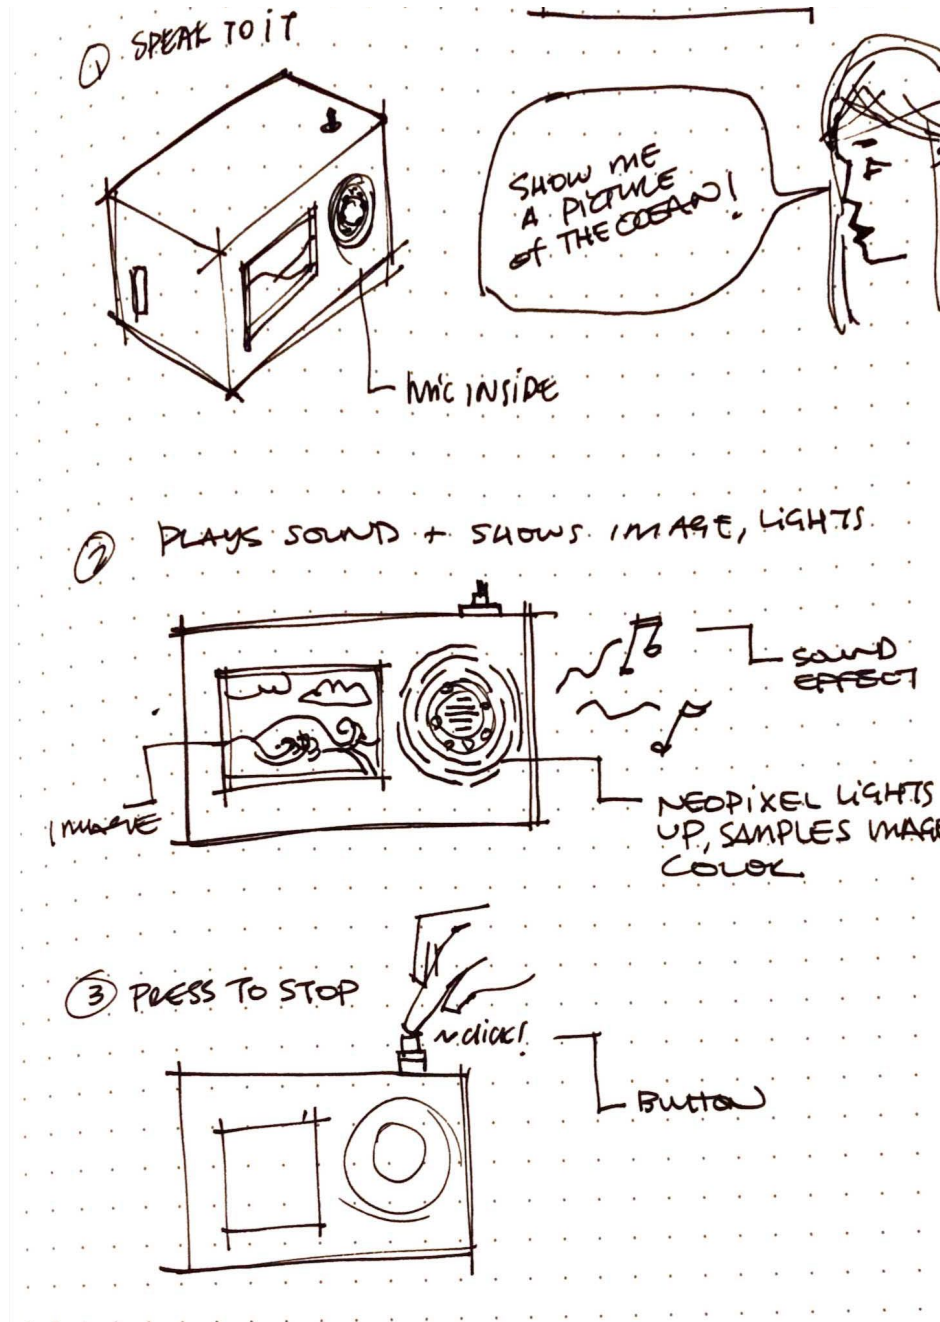 ① SPEAK TO IT
SHOW ME
A PICTURE
of THE OCEAN!
MIC INSIDE
② PLAYS SOUND + SHOWS IMAGE, LIGHTS
SOUND
EFFECT
IMAGE
NEOPIXEL LIGHTS
UP, SAMPLES IMAGE
COLOR
③ PRESS TO STOP
~click!
BUTTON